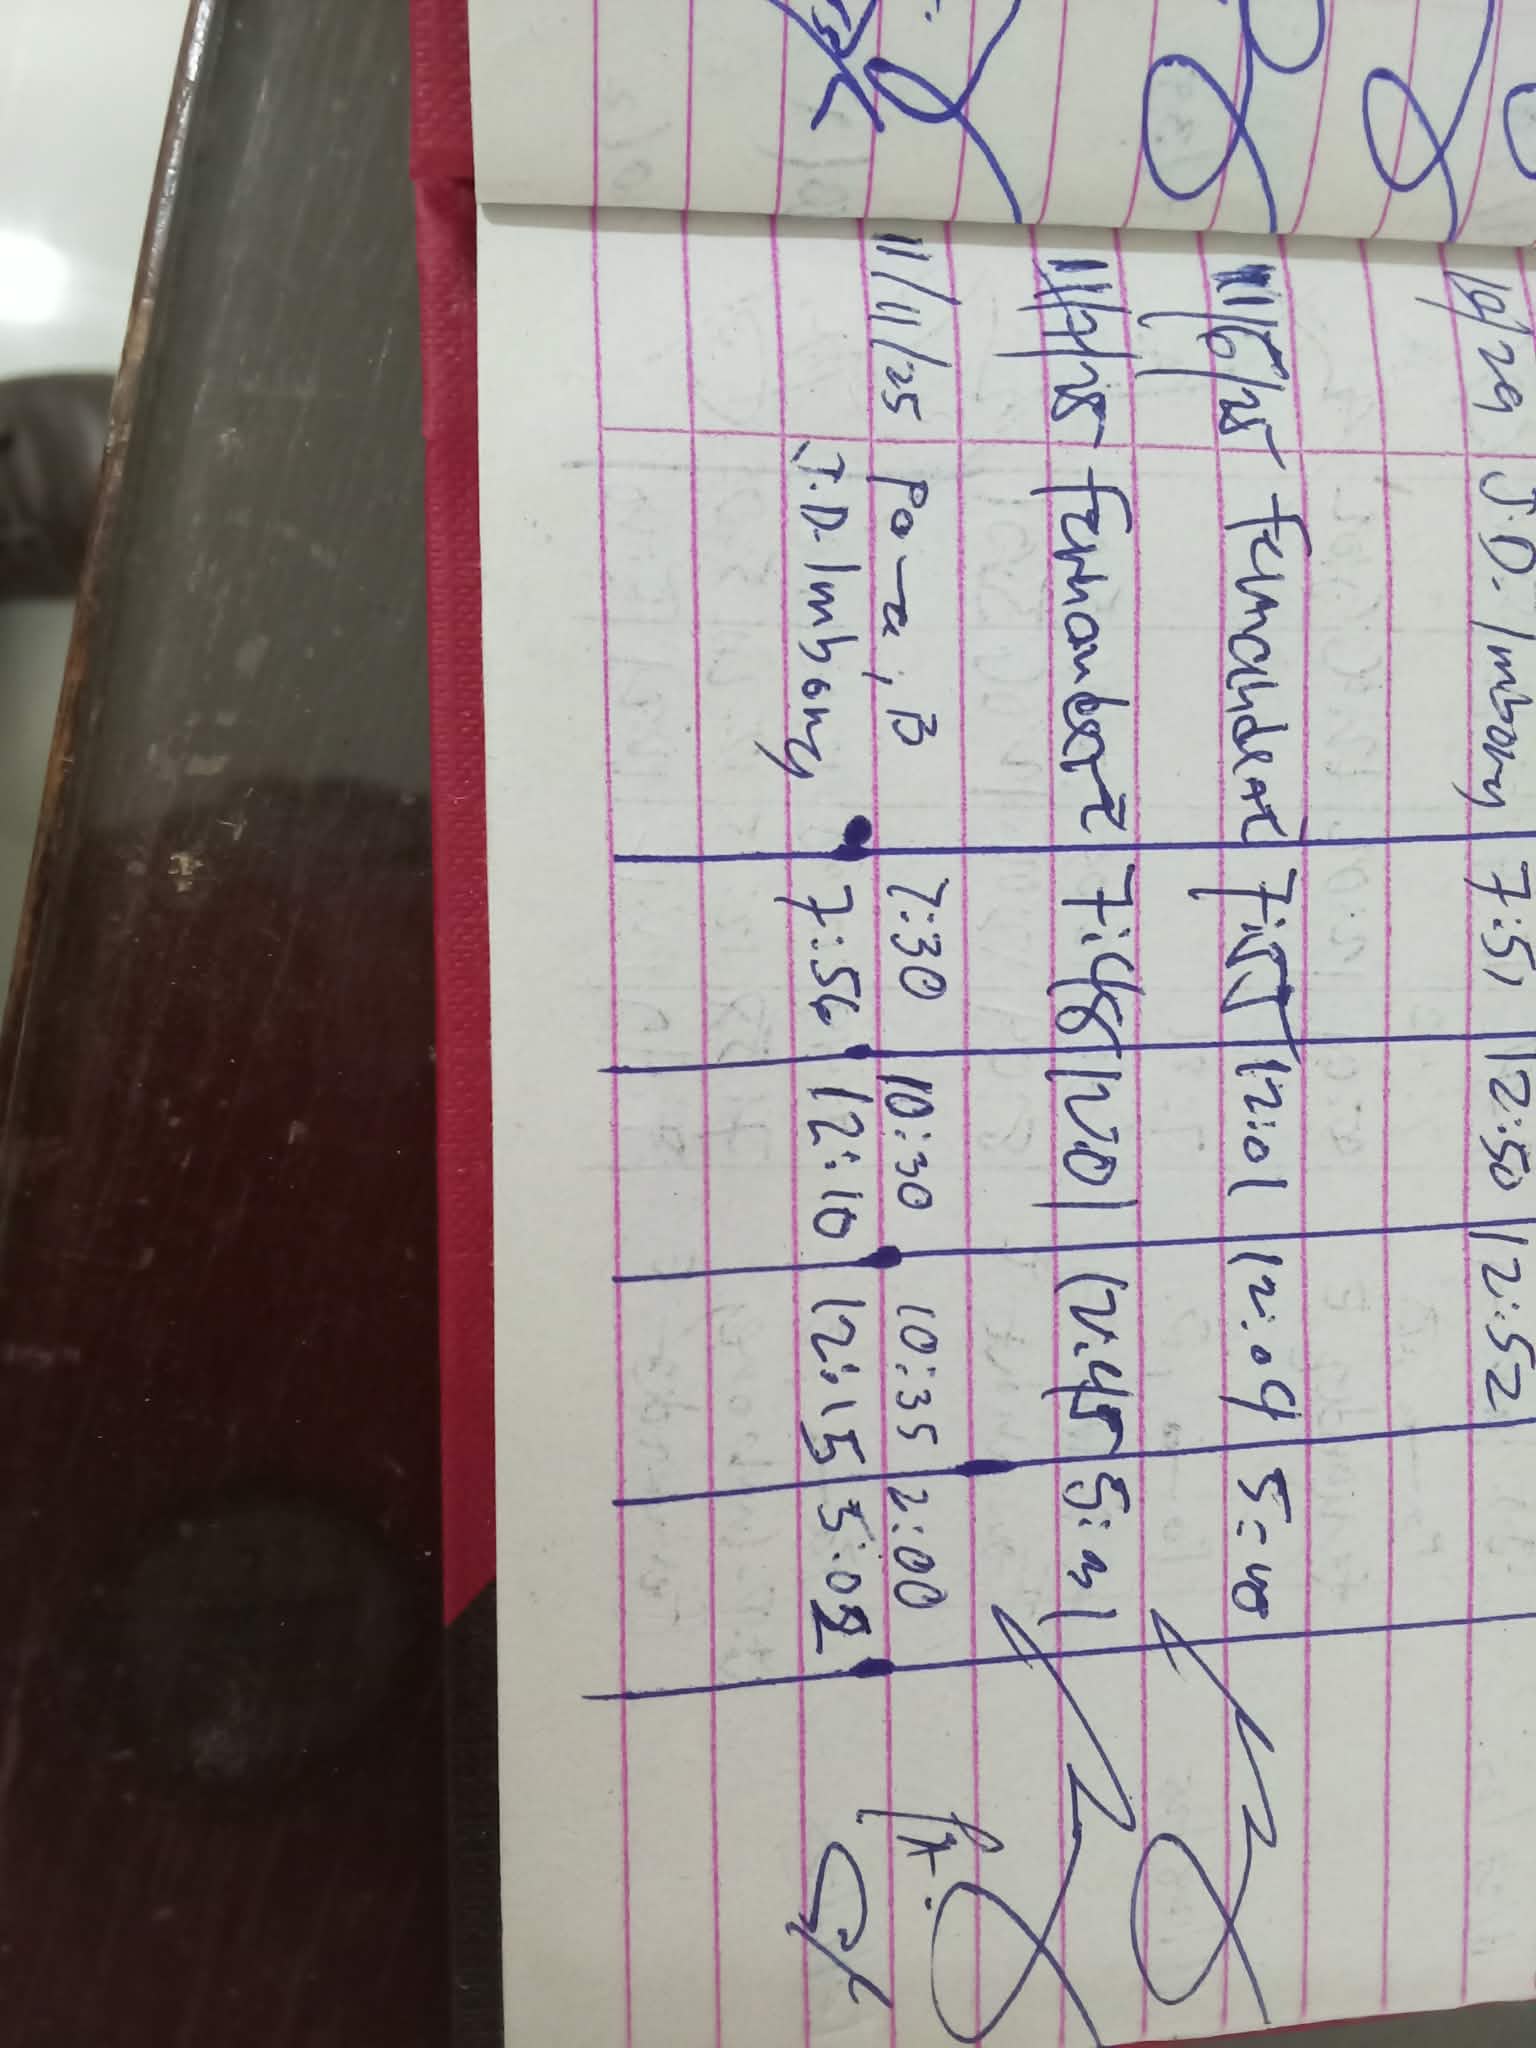 10/29 J.D. Imbong 7:51 12:50 12:52
11/6/25 Fernandez 7:55 12:01 12:04 5:40
11/7/25 Fernandez 7:48 1201 12:45 5:31
11/11/25 B 7:30 10:30 10:35 2:00
J.D. Imbong 7:56 12:10 12:15 5:02